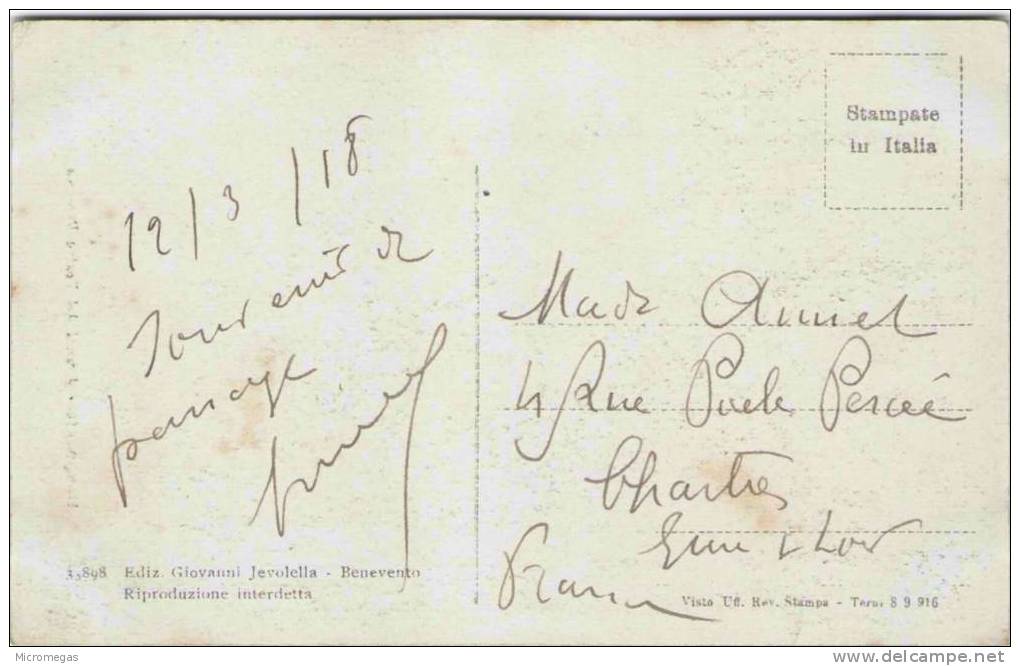 12/3/18
Souvenir de
passage
Stampate
in Italia
Made Annet
4 Rue Poele Percée
Chartres
Eure & Loir
France
33898 Ediz. Giovanni Jevolella - Benevento
Riproduzione interdetta
Visto Uff. Rev. Stampa - Terni 8 9 916
Micromegas
delcampe.net